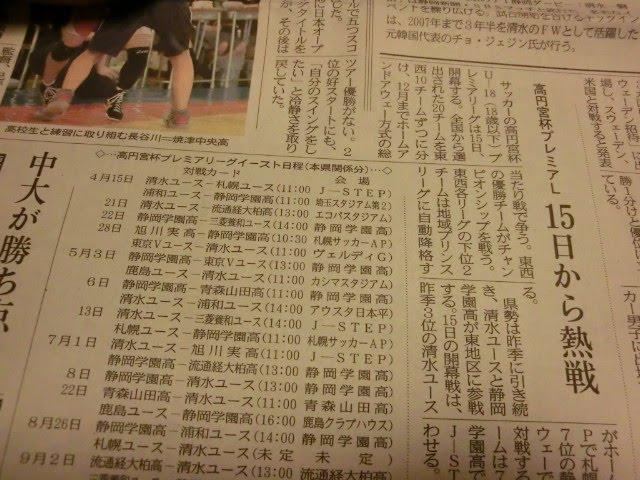 は、2007年まで3年半を清水のFWとして活躍した
元韓国代表のチョ・ジェジン氏が行う。
高円宮杯プレミアL
15日から熱戦
サッカーの高円宮杯
U―18(18歳以下)プ
レミアリーグは15日、
開幕する。全国から選
出された20チームを東
西10チームずつに分
け、12月までホームア
ンドアウェー方式の総
当たり戦で争う。東西
の優勝チームがチャン
ピオンシップを戦う。
東西各リーグの下位2
チームは地域プリンス
リーグに自動降格す
る。
県勢は昨季に引き続
き、清水ユースと静岡
学園高が東地区に参戦
する。15日の開幕戦は、
昨季3位の清水ユース
がホー
Pで札幌
7位の静
ウェーで
対戦する
ームは7
学園高で
J―ST
わせる。
米国と対戦すると発表
している。
ツアー優勝がない。2
位の好スタートにも、
「自分のスイングをし
たい」と冷静さを取り
戻していた。
高校生と練習に取り組む長谷川=焼津中央高
◇…高円宮杯プレミアリーグイースト日程(本県関係分)…◇
対戦カード 会場
4月15日 清水ユース―札幌ユース(11:00 J―STEP)
浦和ユース―静岡学園高(11:00 埼玉スタジアム第2)
21日 清水ユース―流通経大柏高(13:00 エコパスタジアム)
22日 静岡学園高―三菱養和ユース(14:00 静岡学園高)
28日 旭川実高―静岡学園高(10:30 札幌サッカーAP)
東京Vユース―清水ユース(11:00 ヴェルディG)
5月3日 静岡学園高―東京Vユース(13:00 静岡学園高)
鹿島ユース―清水ユース(11:00 カシマスタジアム)
6日 静岡学園高―青森山田高(11:00 静岡学園高)
清水ユース―浦和ユース(14:00 アウスタ日本平)
13日 清水ユース―三菱養和ユース(14:00 J―STEP)
札幌ユース―静岡学園高(11:00 札幌サッカーAP)
7月1日 清水ユース―旭川実高(11:00 J―STEP)
静岡学園高―流通経大柏高(13:00 静岡学園高)
8日 静岡学園高―清水ユース(13:00 静岡学園高)
22日 青森山田高―清水ユース(11:00 青森山田高)
鹿島ユース―静岡学園高(16:00 鹿島クラブハウス)
8月26日 静岡学園高―浦和ユース(14:00 静岡学園高)
札幌ユース―清水ユース(未定 未定)
9月2日 流通経大柏高―清水ユース(11:00
中大が勝ち点